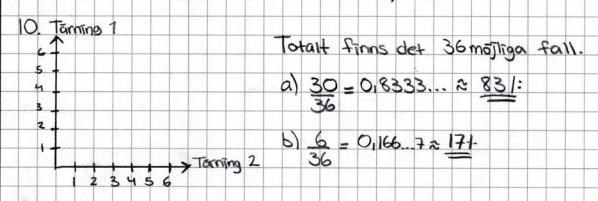 10. Tärning 1
6
5
4
3
2
1
1 2 3 4 5 6
Tärning 2
Totalt finns det 36 möjliga fall.
a) 30/36 = 0,8333... ≈ 83%
b) 6/36 = 0,166...7 ≈ 17%